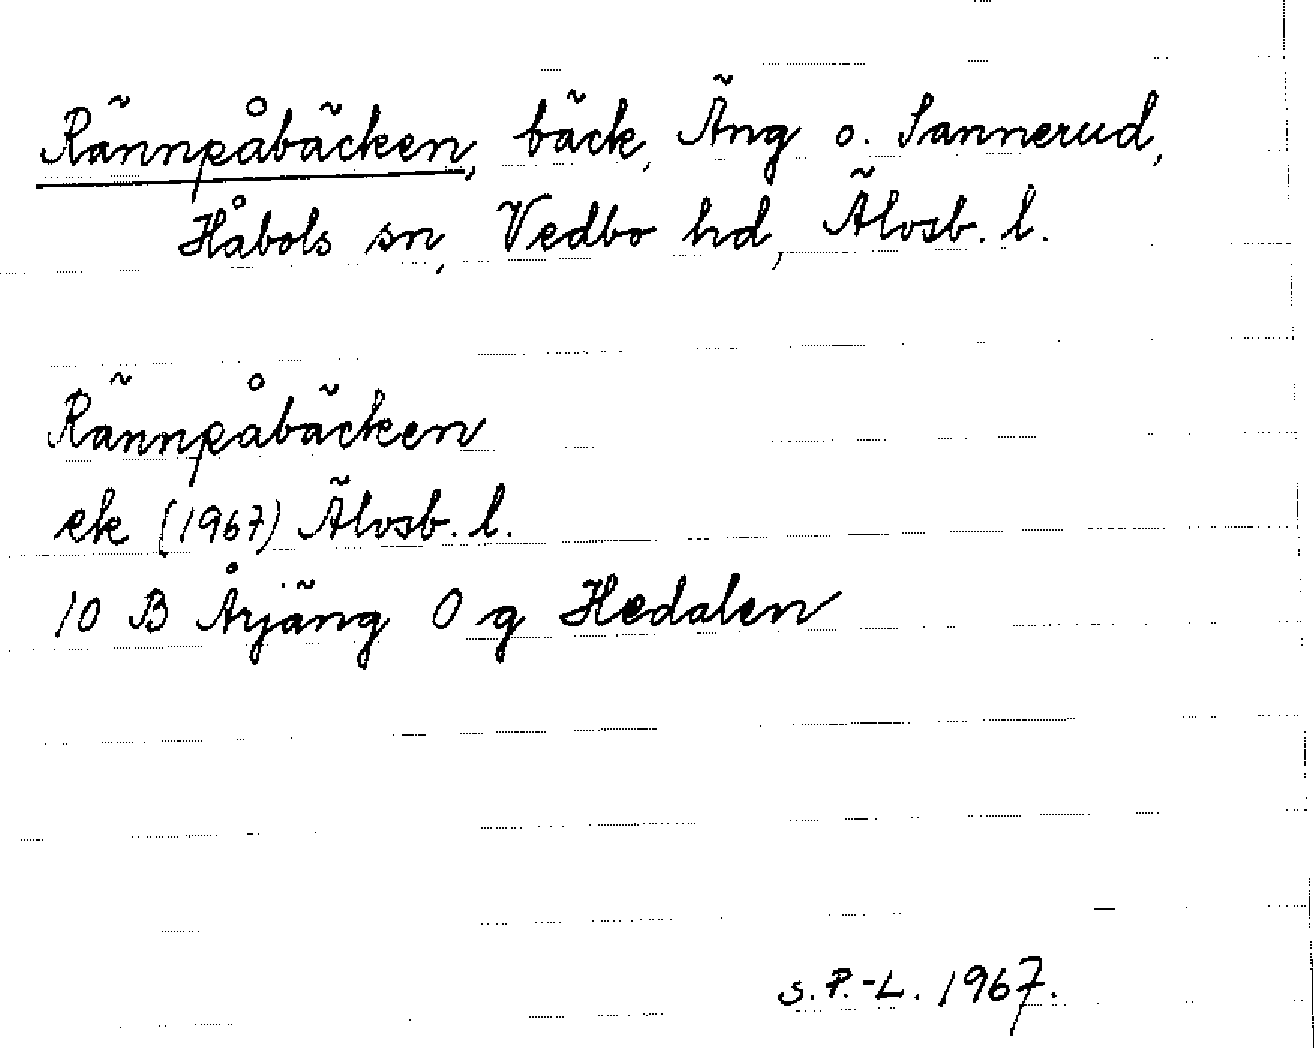 Rännpåbäcken, bäck, Äng o. Sannerud,
Håbols sn, Vedbo hd, Älvsb. l.
Rännpåbäcken
ek (1967) Älvsb. l.
10 B Årjäng 0 g Hedalen
s. P.-L. 1967.